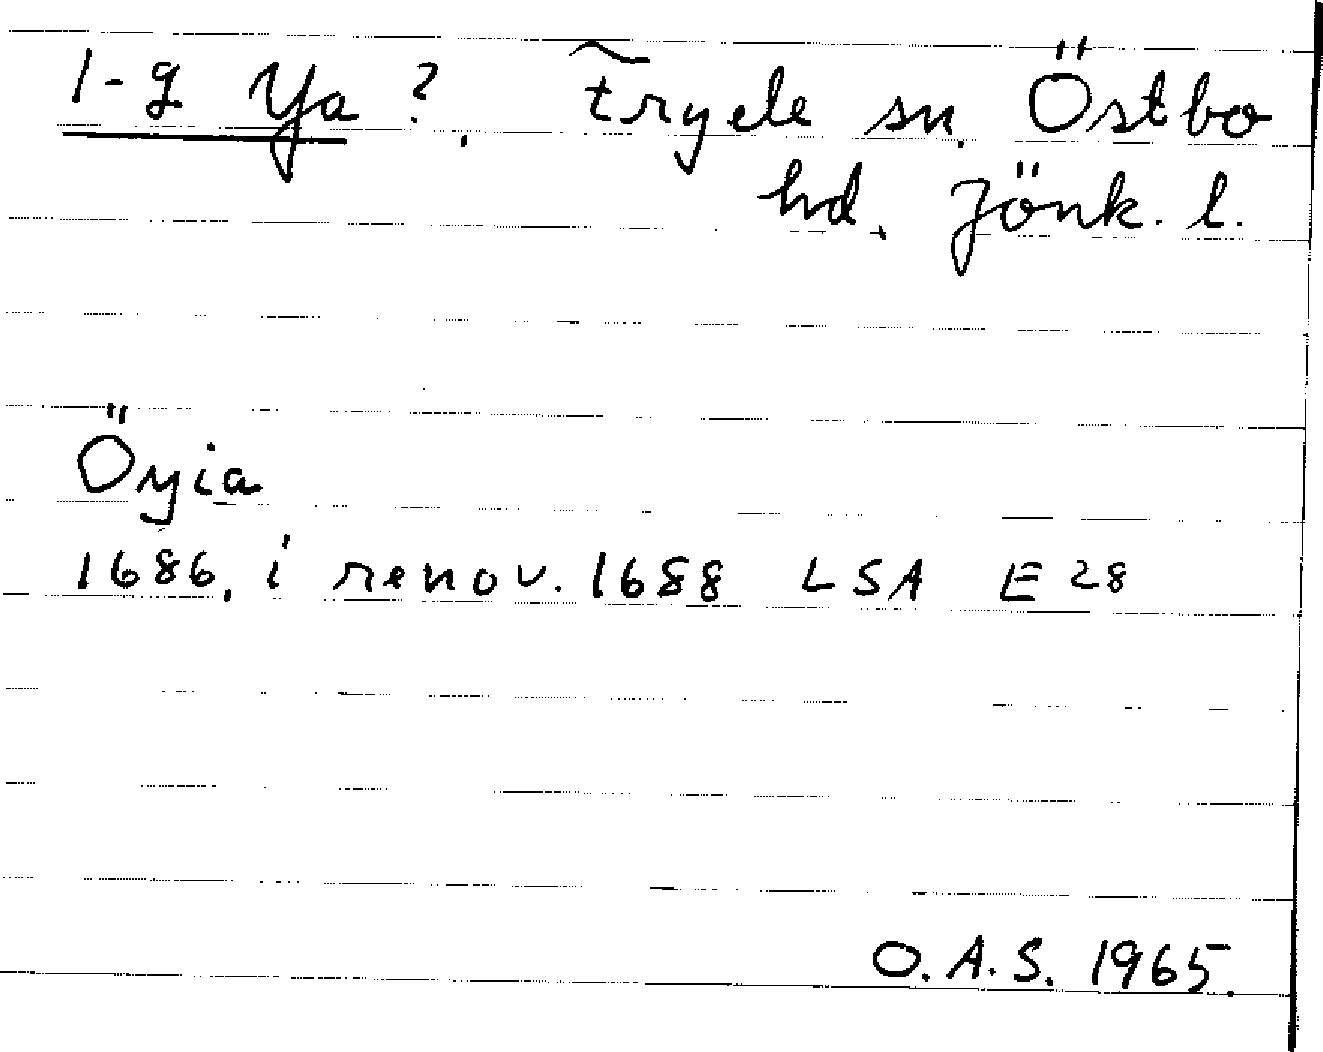 1-g Ya?. Tryele sn. Östbo
hd. Jönk. l.
Öyia
1686, i renov. 1688 LSA E 28
O.A.S. 1965.